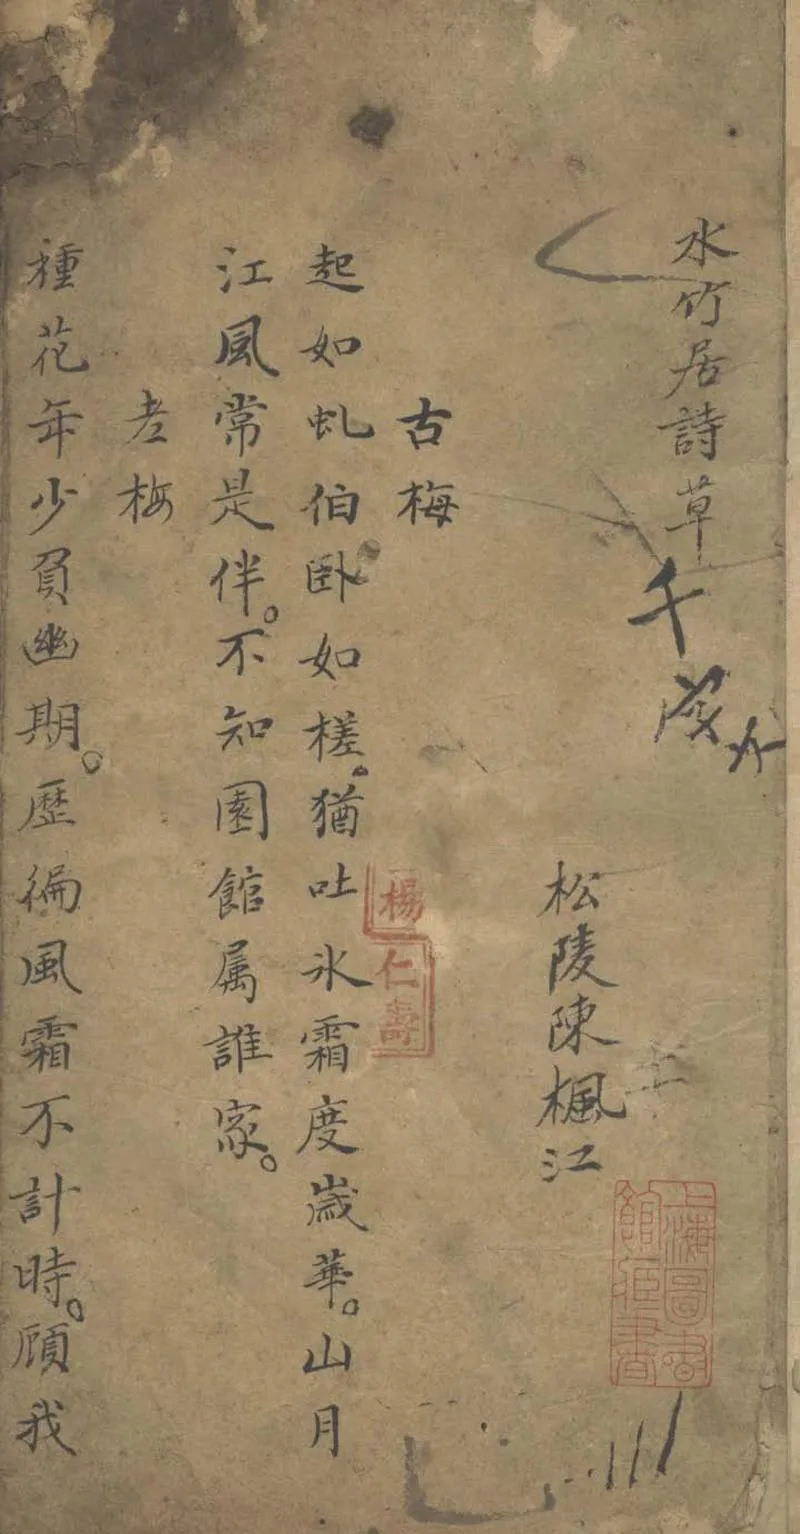 水竹居詩草
千
松陵陳楓江
上海圖書館藏書
古梅
楊仁壽
起如虬伯卧如槎猶吐氷霜度嵗華。山月
江風常是伴。不知園館属誰家。
老梅
種花年少負幽期。歷徧風霜不計時。顧我